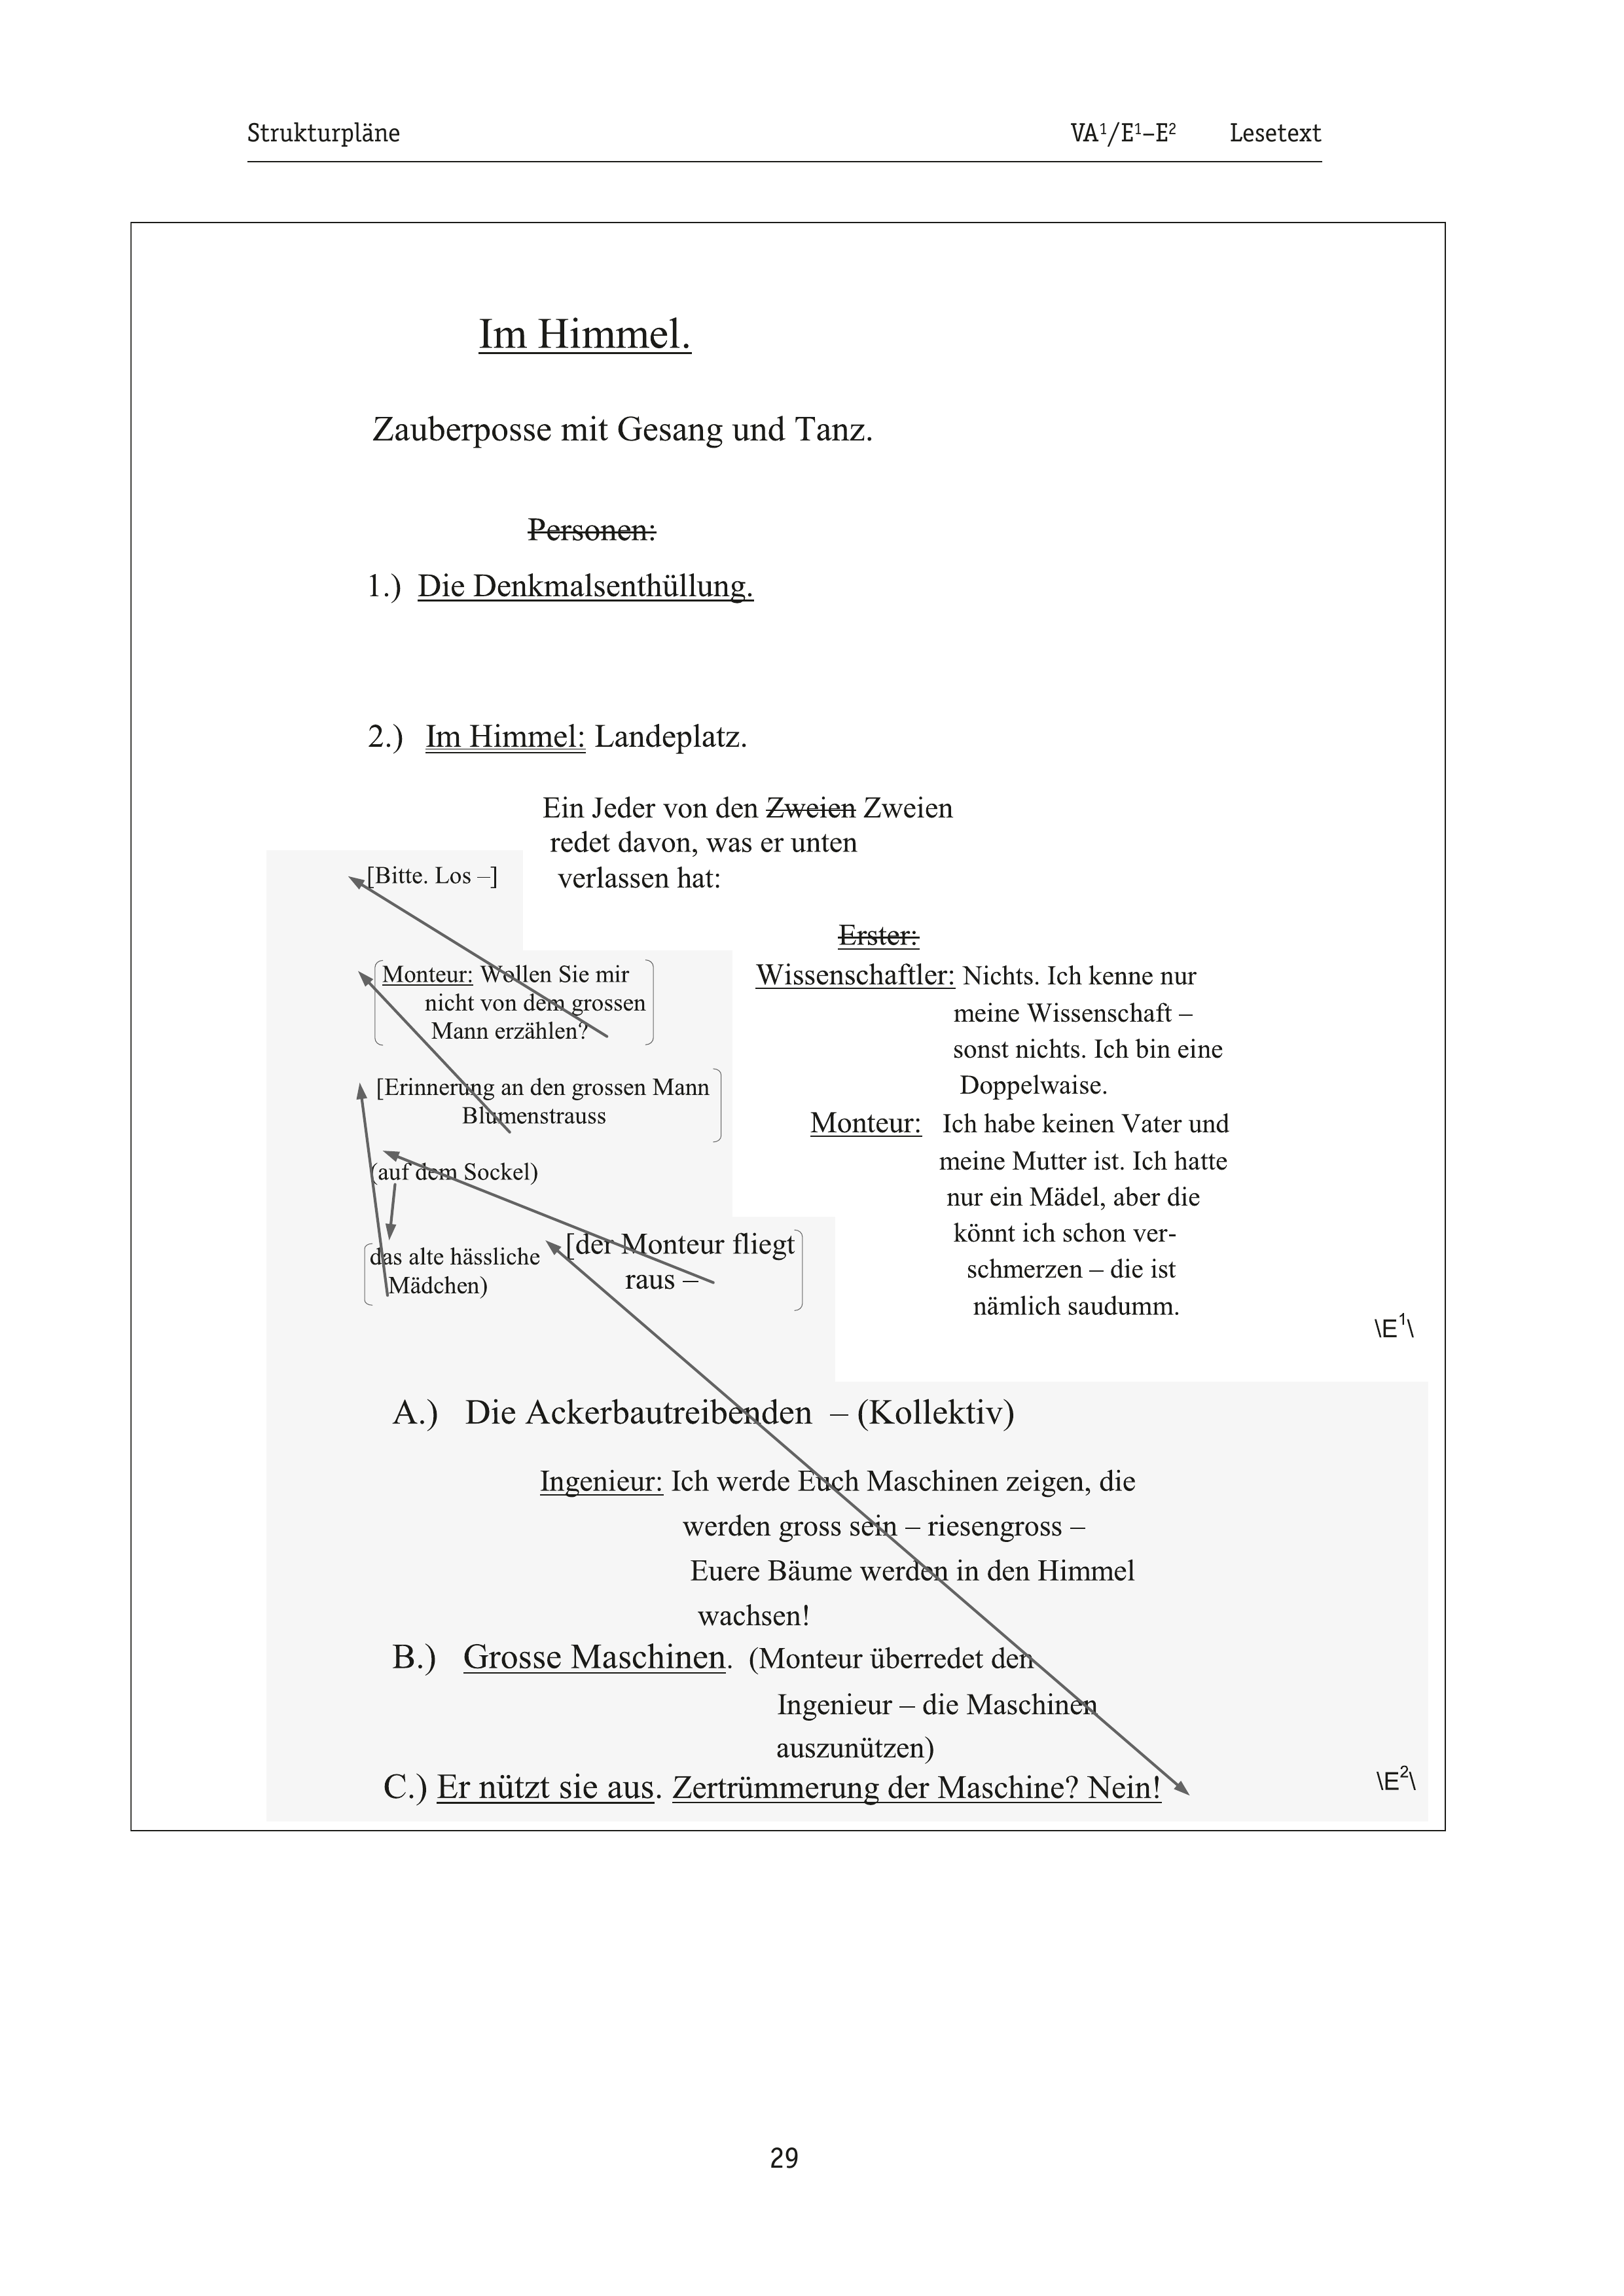 Strukturpläne VA¹/E¹–E² Lesetext
Im Himmel.
Zauberposse mit Gesang und Tanz.
Personen:
1.) Die Denkmalsenthüllung.
2.) Im Himmel: Landeplatz.
Ein Jeder von den Zweien Zweien
redet davon, was er unten
verlassen hat:
[Bitte. Los –]
Monteur: Wollen Sie mir
nicht von dem grossen
Mann erzählen?
[Erinnerung an den grossen Mann
Blumenstrauss
(auf dem Sockel)
das alte hässliche
Mädchen)
[der Monteur fliegt
raus –
Erster:
Wissenschaftler: Nichts. Ich kenne nur
meine Wissenschaft –
sonst nichts. Ich bin eine
Doppelwaise.
Monteur: Ich habe keinen Vater und
meine Mutter ist. Ich hatte
nur ein Mädel, aber die
könnt ich schon ver-
schmerzen – die ist
nämlich saudumm.
\E¹\
A.) Die Ackerbautreibenden – (Kollektiv)
Ingenieur: Ich werde Euch Maschinen zeigen, die
werden gross sein – riesengross –
Euere Bäume werden in den Himmel
wachsen!
B.) Grosse Maschinen. (Monteur überredet den
Ingenieur – die Maschinen
auszunützen)
C.) Er nützt sie aus. Zertrümmerung der Maschine? Nein!
\E²\
29